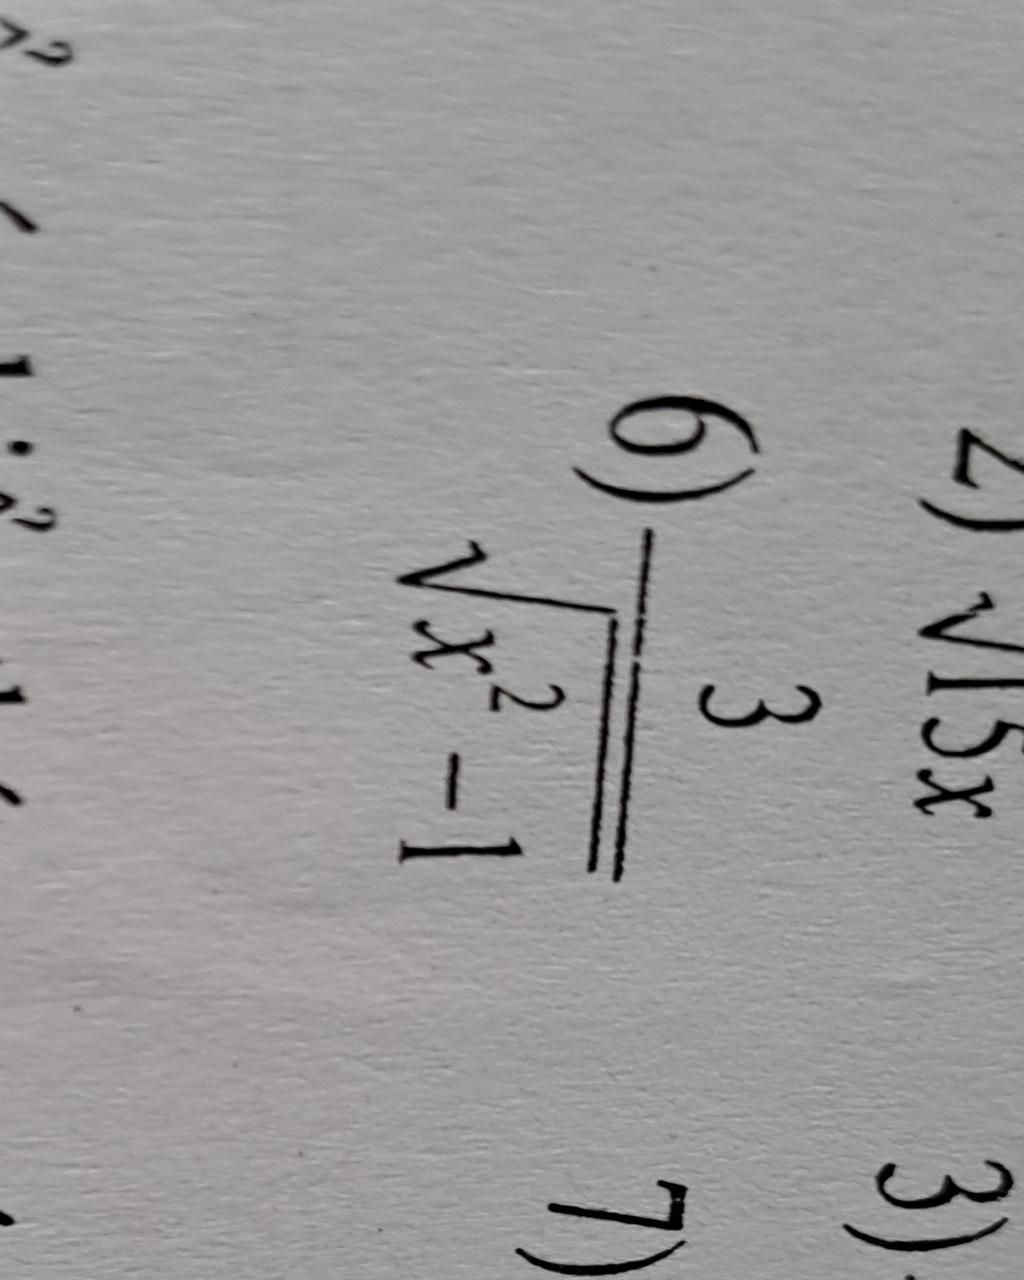 2) √15x 3)
6) 3/√(x² − 1) 7)